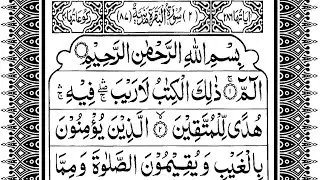 اٰیاتها ٢٨٦ (٢) سُوْرَةُ الْبَقَرَةِ مَدَنِیَّةٌ (٨٧) رکوعاتها ٤٠
بِسْمِ اللّٰهِ الرَّحْمٰنِ الرَّحِیْمِ
الٓمّٓ ۚ ذٰلِكَ الْكِتٰبُ لَا رَیْبَ ۛۖ فِیْهِ ۛۚ
هُدًی لِّلْمُتَّقِیْنَ ۙ۲ الَّذِیْنَ یُؤْمِنُوْنَ
بِالْغَیْبِ وَ یُقِیْمُوْنَ الصَّلٰوةَ وَ مِمَّا